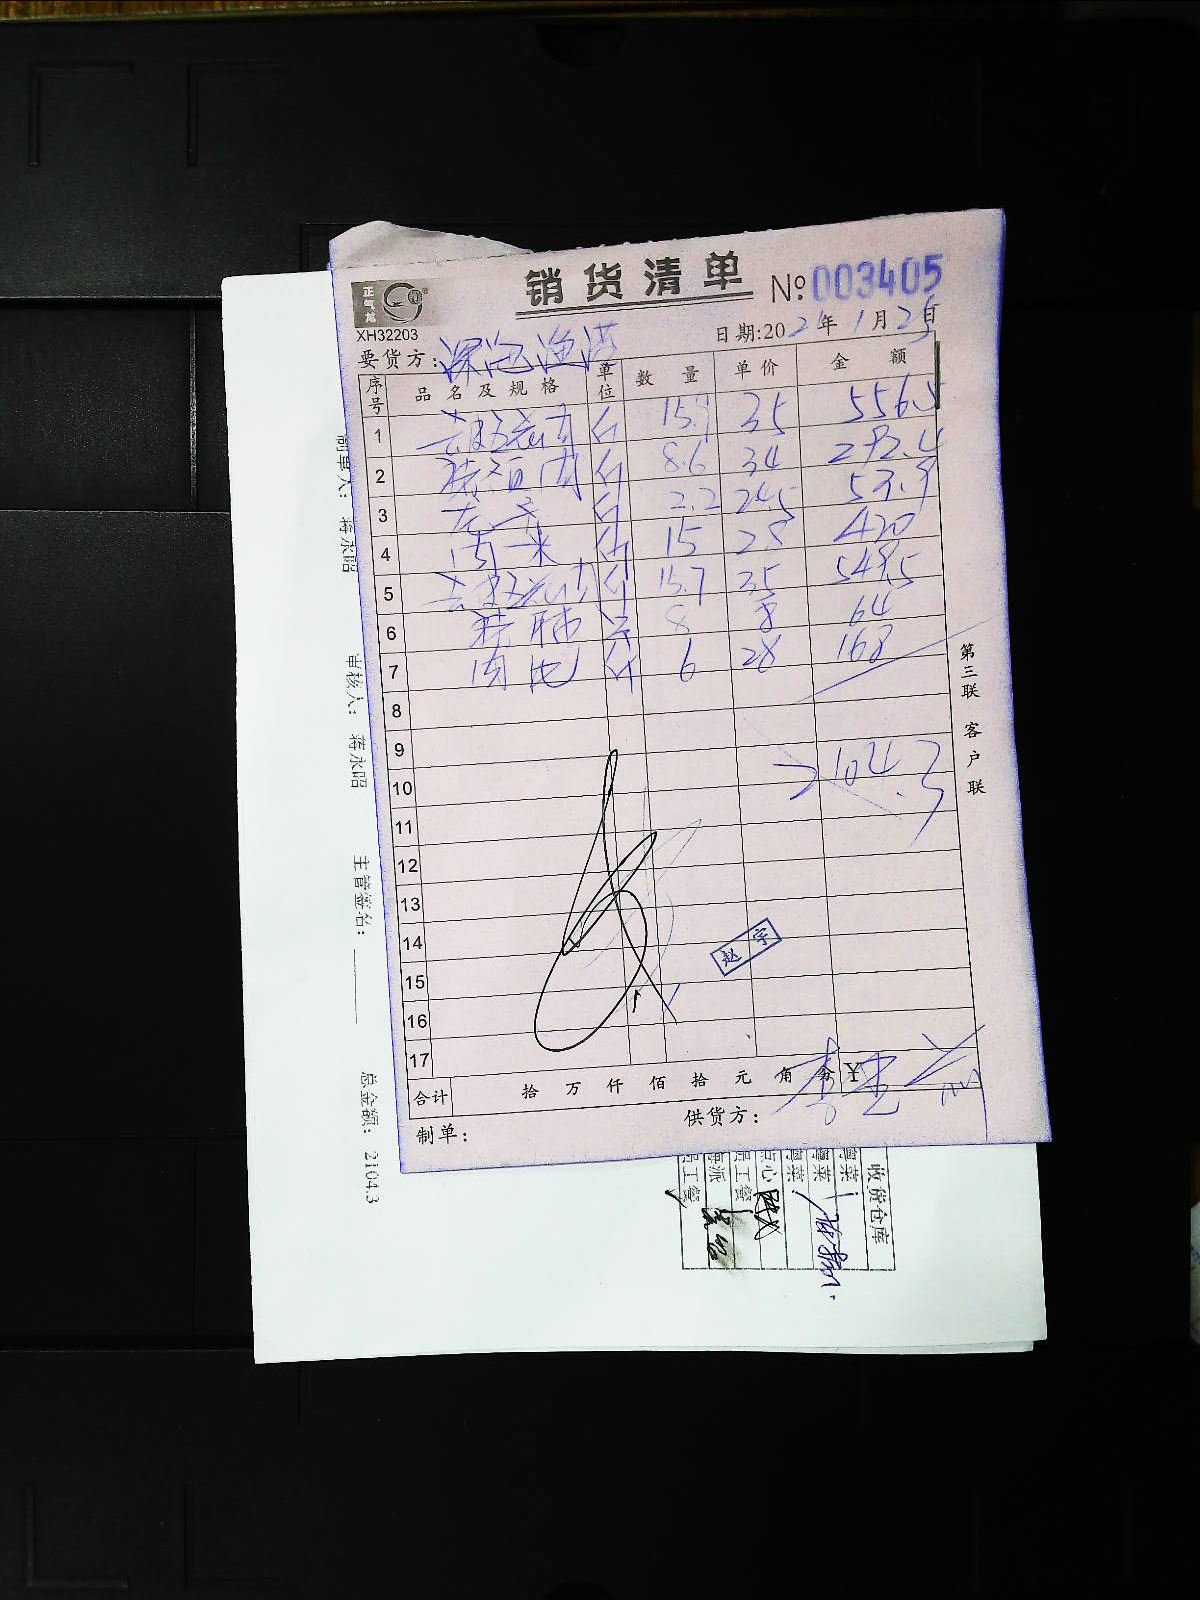 正气龙
销货清单
№ 003405
XH32203
日期:2021年1月25日
要货方:深海渔港
序号 品名及规格 单位 数量 单价 金额
1 去皮 肉 斤 15.9 35 556.5
2 斤 8.6 34 292.4
3 斤 2.2 24.5 53.9
4 肉 斤 15 28 420
5 去皮 斤 15.7 35 549.5
6 8 8 64
7 肉 斤 6 28 168
8
9
10 2104.3
11
12
13
14
15
16
17
赵宇
合计 拾 万 仟 佰 拾 元 角 分
制单: 供货方:
第三联 客户联
制单人: 蒋永昭
审核人: 蒋永昭
主管签名:
总金额: 2104.3
收货仓库
粤菜
粤菜
粤菜
点心
员工餐
海派
员工餐